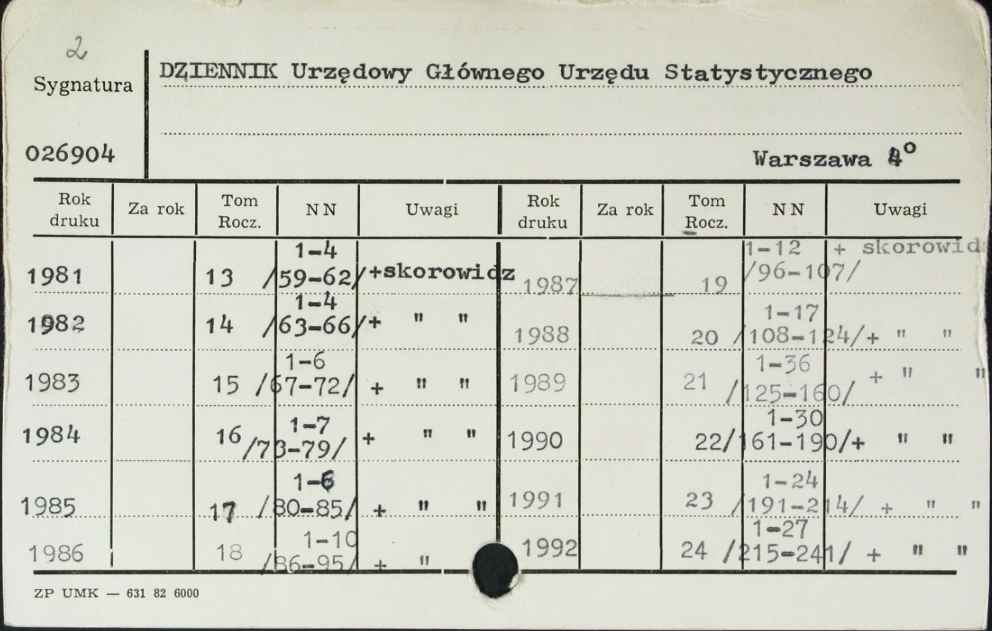 2
Sygnatura
DZIENNIK Urzędowy Głównego Urzędu Statystycznego
026904
Warszawa 4°
Rok druku Za rok Tom Rocz. NN Uwagi Rok druku Za rok Tom Rocz. NN Uwagi
1981 13 1-4 /59-62/ +skorowidz 1987 19 1-12 /96-107/ + skorowidz
1982 14 1-4 /63-66/ + " " 1988 20 1-17 /108-124/ + " "
1983 15 1-6 /67-72/ + " " 1989 21 1-36 /125-160/ + " "
1984 16 1-7 /73-79/ + " " 1990 22 1-30 /161-190/ + " "
1985 17 1-6 /80-85/ + " " 1991 23 1-24 /191-214/ + " "
1986 18 1-10 /86-95/ + " 1992 24 1-27 /215-241/ + " "
ZP UMK — 631 82 6000